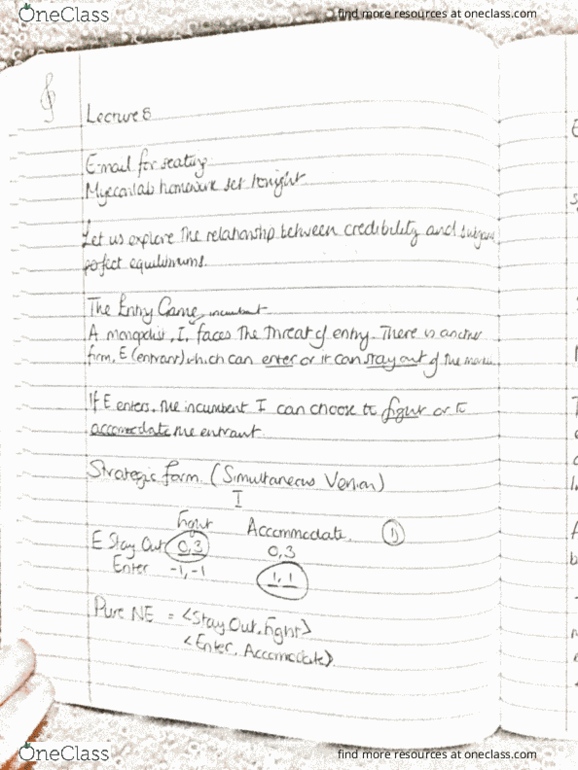 OneClass
find more resources at oneclass.com
Lecture 8
E-mail for seating
Myeconlab homework set tonight
Let us explore the relationship between credibility and subgame
perfect equilibriums.
The Entry Game incumbent
A monopolist, I, faces the threat of entry. There is another
firm, E (entrant) which can enter or it can stay out of the
If E enters, the incumbent I can choose to fight or to
accomodate the entrant
Strategic form. (Simultaneous Version)
I
Fight Accommodate. 1)
E Stay Out 0,3 0,3
Enter -1,-1 1,1
Pure NE = <Stay Out, Fight>
<Enter, Accomodate>
OneClass
find more resources at oneclass.com